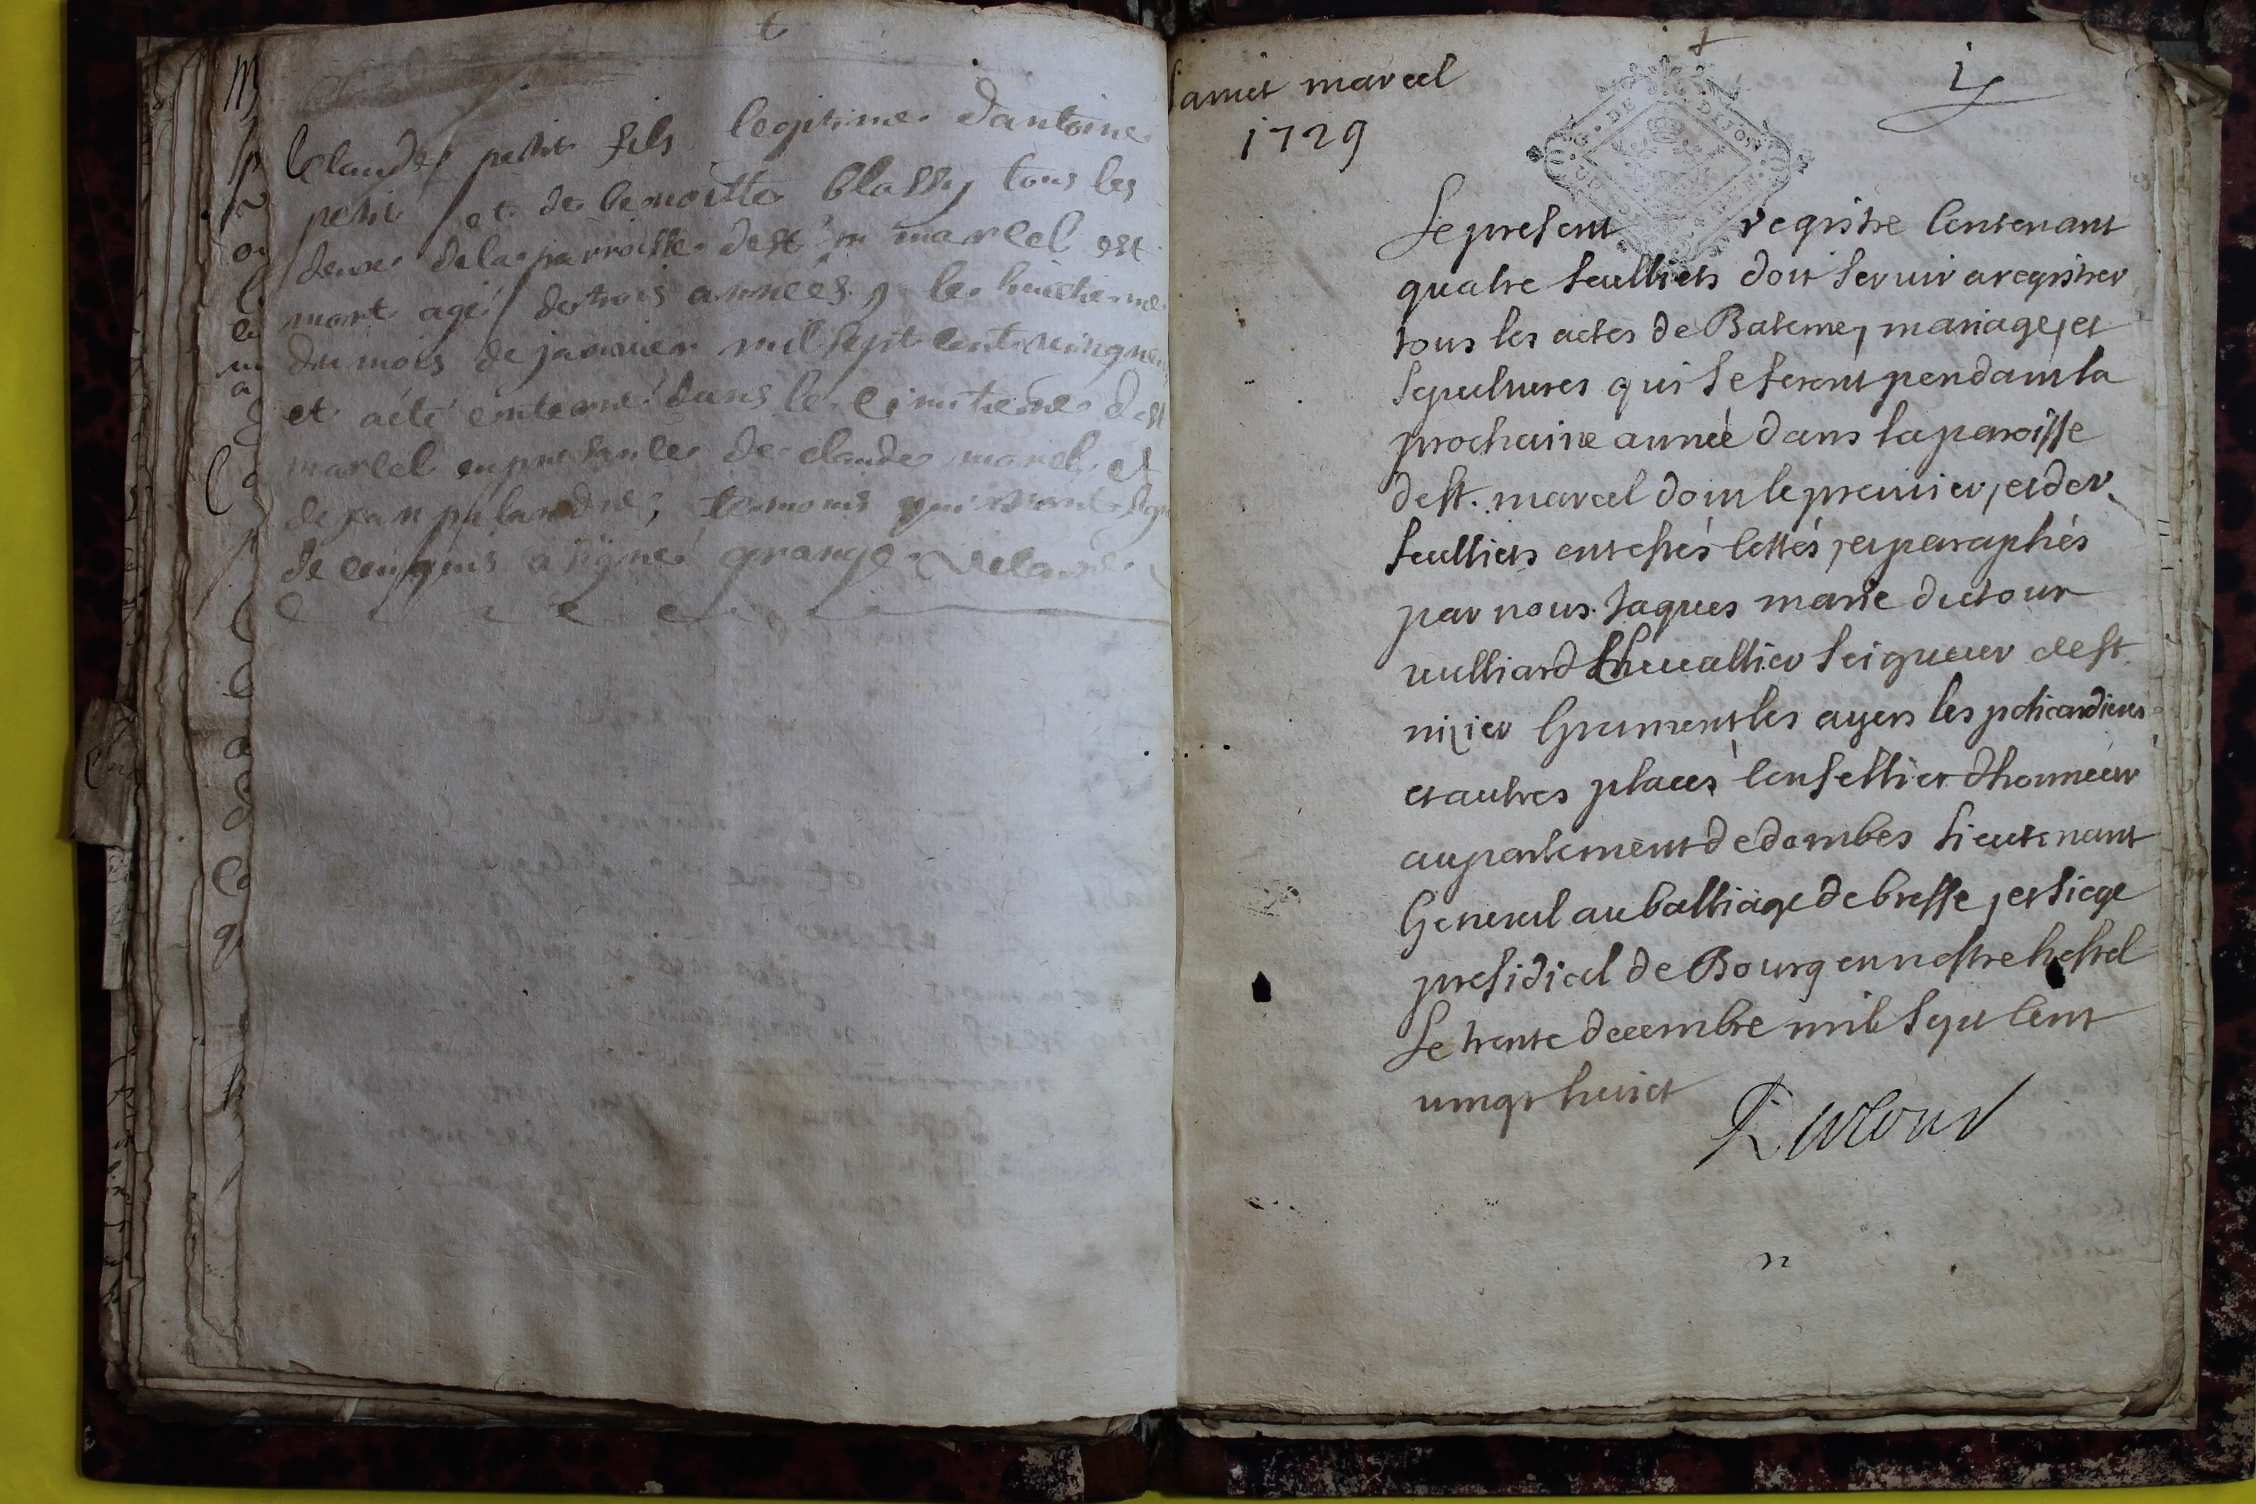 Claude petit fils legitime dantoine
petit et de benoitte blassy tous les
deux de la parroisse de st marcel est
mort agé de trois années, le huictieme
du mois de janvier mil sept cent vingneuf
et a été enterré dans le cimetiere de st
marcel en presance de claude morel et
de jan temoins qui
de ce enquis a signé grange
sainct marcel
1729
DE DIJON
Le present registre Contenant
quatre feulliets doit servir a registrer
tous les actes de Bateme, mariage, et
sepultures qui se feront pendant la
prochaine année dans la paroisse
de st. marcel dont le premier, et der.
feulliets ont estés cottés, et paraphés
par nous Jaques marie dutour
vulliard Chevallier seigneur de st
nizier Grument les ayers les
et autres places Conseillier dhonneur
au parlement de dombes lieutenant
General au balliage de bresse, et siege
presidial de Bourg en nostre hostel
Le trente decembre mil sept Cent
vingt huict
Dutour